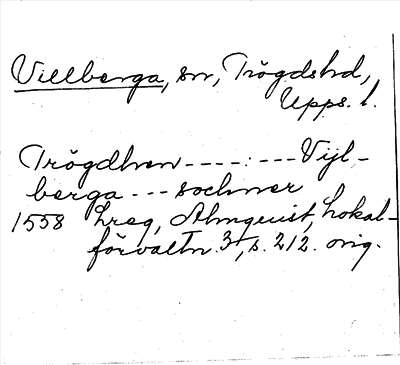 Villberga, sn, Trögds hd,
Upps. l.
Trögdhen ----:--- Vijl-
berga --- sochner
1558 Lreg, Almquist, Lokal-
förvaltn. 3, s. 212. orig.